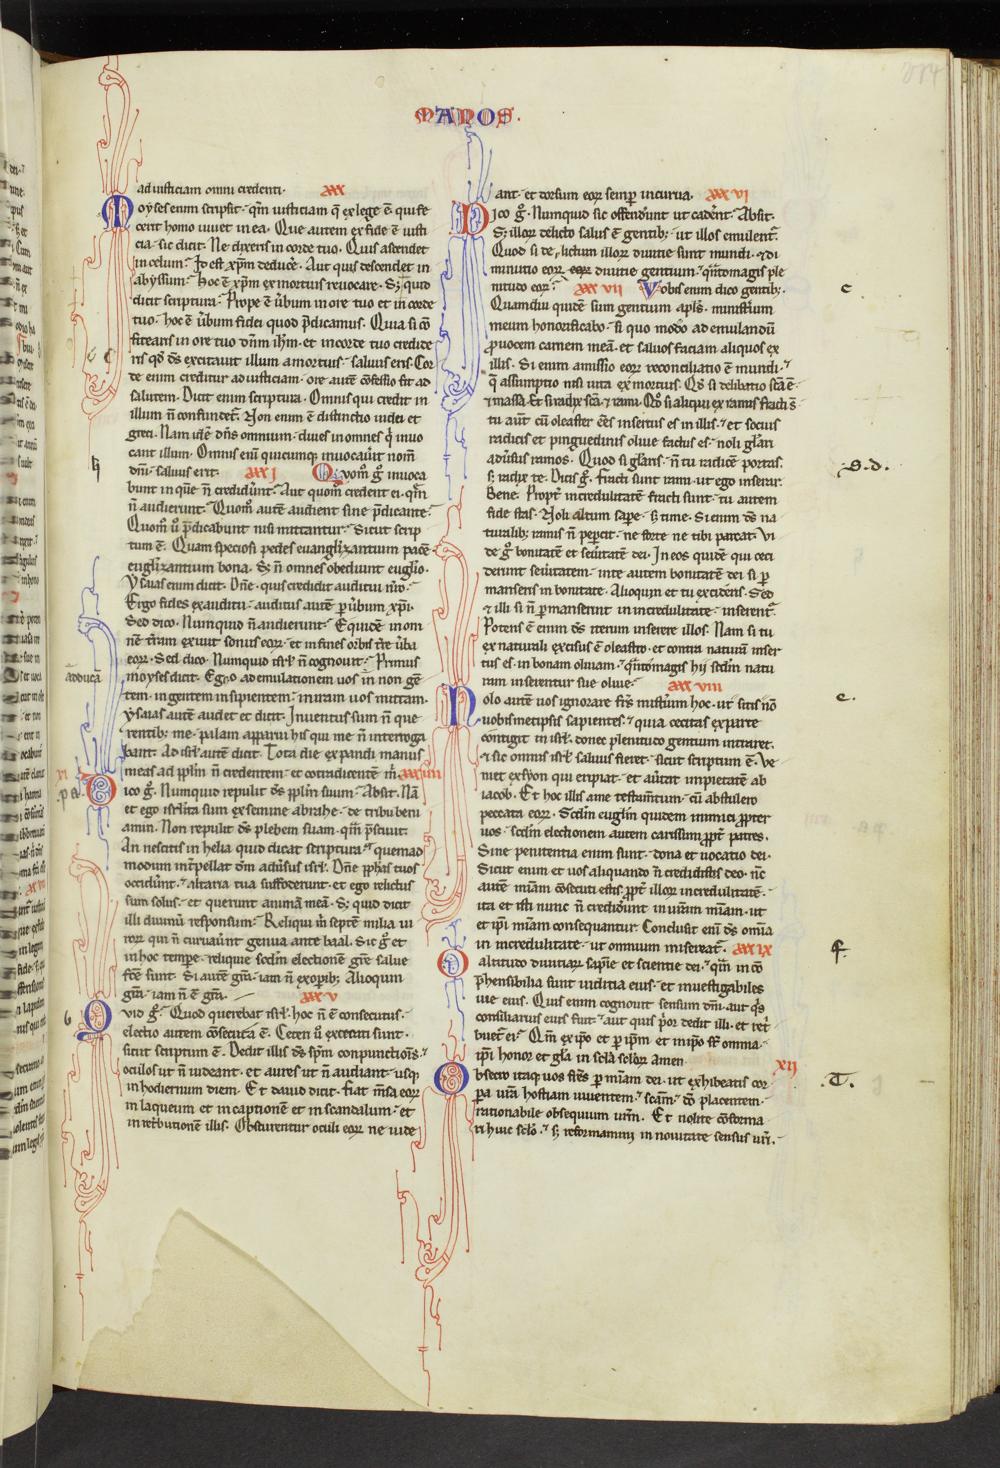 MANOS.
ad iusticiam omni credenti. xxx
Moyses enim scripsit. qm̄ iusticiam q̄ ex lege ē. qui fe
cerit homo uiuet in ea. Que autem ex fide ē iusti
cia. sic dicit. Ne dixeris in corde tuo. Quis ascendet
in celum? Id est xp̄m deducē. Aut quis descendet in
abyssum? Hoc ē xp̄m ex mortuis reuocare. Sꝫ quid
dicit scriptura? Prope ē ūbum in ore tuo et in corde
tuo. hoc ē ūbum fidei quod p̄dicamus. Quia si cō
fitearis in ore tuo dn̄m ihm̄. et in corde tuo credide
ris qd̓ ds̄ excitauit illum a mortuis. saluus eris. Cor
de enim creditur ad iusticiam. ore autē cōfessio fit ad
salutem. Dicit enim scriptura. Omnis qui credit in
illum n̄ confundet̄. Non enim ē distinctio iudei et
greci. Nam idē dn̄s omnium. diues in omnes q̓ inuo
cant illum. Omnis enī quicumqꝫ inuocauit nom̄
dn̄i. saluus erit. xxxi Quom̄ ḡ inuoca
bunt in quē n̄ crediderūt? Aut quom̄ credent ei. qm̄
n̄ audierunt? Quom̄ autē audient sine p̄dicante?
Quom̄ ū p̄dicabunt nisi mittantur? Sicut scrip
tum ē. Quam speciosi pedes euanglizantium pacē
euglizantium bona. Sꝫ n̄ omnes obediunt euglio.
Ysaias enim dicit. Dn̄e. quis credidit auditui nr̄o?
Ergo fides ex auditu. auditus autē p ūbum xp̄i.
Sed dico. Numquid n̄ audierunt? Equidē in om
nē t̄ram exiuit sonus eoꝝ. et in fines orbis t̄re ūba
eoꝝ. Sed dico. Numquid isrl̄ n̄ cognouit? Primus
moyses dicit. Ego ad emulationem uos in non gē
adducā
tem. in gentem insipientem. in iram uos mittam.
Ysaias autē audet et dicit. Inuentus sum n̄ que
rentibꝫ me. palam apparui his qui me n̄ interroga
bant. Ad isrl̄ autē dicit. Tota die expandi manus
meas ad pp̄lm n̄ credentem. et cōtradicentē m̄.
xi
Dico ḡ. Numquid repulit ds̄ pp̄lm suum? Absit. Nā
et ego isrl̄ita sum ex semine abrahe. de tribu beni
amin. Non repulit ds̄ plebem suam. qm̄ p̄sciuit.
An nescitis in helia quid dicat scriptura? quemad
modum int̄pellat dm̄ adūsus isrl̄. Dn̄e pphas tuos
occidūnt. altaria tua suffoderunt. et ego relictus
sum solus. et querunt animā meā. Sꝫ quid dicit
illi diuinū responsum? Reliqui m̄ septē milia ui
roꝝ qui n̄ curuaūnt genua ante baal. Sic ḡ et
in hoc tempe. reliquie scdm̄ electionē grē salue
fcē sunt. Si autē grā. iam n̄ ex opibꝫ. Alioquin
grā. iam n̄ ē grā. xxxv
Quid ḡ? Quod querebat isrl̄. hoc n̄ ē consecutus.
electio autem cōsecuta ē. Ceteri ū excecati sunt.
sicut scriptum ē. Dedit illis ds̄ spm̄ conpunctiōis.
oculos ut n̄ uideant. et aures ut n̄ audiant. usqꝫ
in hodiernum diem. Et dauid dicit. Fiat m̄sa eoꝝ
in laqueum et in captionē et in scandalum. et
in ret̓butionē illis. Obscurentur oculi eoꝝ ne uide
ant. et dorsum eoꝝ semp incurua. xxxvi
Dico ḡ. Numquid sic offendunt ut cadent? Absit.
Sꝫ illoꝝ delicto salus ē gentibꝫ. ut illos emulent̄.
Quod si delictum illoꝝ diuitie sunt mundi. et di
minutio eoꝝ diuitie gentium. q̓ntomagis ple
nitudo eoꝝ? xxxvii Vobis enim dico gentibꝫ.
Quamdiu quidē sum gentium apl̄s. ministium
meum honorificabo. si quo modo ad emulandū
puocem carnem meā. et saluos faciam aliquos ex
illis. Si enim amissio eoꝝ reconciliatio ē mundi.
q̄ assumptio nisi uita ex mortuis? Qd̓ si delibatio scā ē.
et massa. Et si radix scā. et rami. Qd̓ si aliqui ex ramis fracti sī.
tu aūt cū oleaster eēs insertus es in illis. et socius
radicis et pinguedinis oliue factus es. noli glari
adūsus ramos. Quod si glaris. n̄ tu radicē portas.
sꝫ radix te. Dicis ḡ. Fracti sunt rami ut ego inserar.
Bene. Propt̄ incredulitatē fracti sunt. tu autem
fide stas. Noli altum sape. sꝫ time. Si enim ds̄ na
turalibꝫ ramis n̄ pepcit. ne forte ne tibi parcat. Vi
de ḡ bonitatē et seūitatē dei. In eos quidē qui ceci
derunt seūitatem. in te autem bonitatē dei si p
manseris in bonitate. Alioquin et tu excideris. Sed
et illi si n̄ pmanserint in incredulitate. inserent̄.
Potens ē enim ds̄ iterum inserere illos. Nam si tu
ex naturali excisus ē oleastro. et contra naturā inser
tus es. in bonam oliuam. q̓ntomagis hii scdm̄ natu
ram inserentur sue oliue. xxxviii
Nolo autē uos ignorare frs̄ mistium hoc. ut sitis nō
uobismetipsis sapientes. quia cecitas ex parte
contigit in isrl̄. donec plenitudo gentium intraret.
et sic omnis isrl̄ saluus fieret. sicut scriptum ē. Ve
niet ex syon qui eripiat. et aūtat impietatē ab
iacob. Et hoc illis a me testamtum. cū abstulero
peccata eoꝝ. Scdm̄ euglm quidem inimici ppter
uos. scdm̄ electionem autem carissimi ppt̄ patres.
Sine penitentia enim sunt. dona et uocatio dei.
Sicut enim et uos aliquando n̄ credidistis deo. nc̄
autē miam̄ cōsecuti estis. ppt̄ illoꝝ incredulitatē.
ita et isti nunc n̄ crediderunt in uram̄ miam̄. ut
et ipi miam̄ consequantur. Conclusit enī ds̄ omnia
in incredulitate. ut omnium misereat̄. xxxix
O altitudo diuitiaꝝ sapie et scientie dei. qm̄ in cō
phensibilia sunt iudicia eius. et inuestigabiles
uie eius. Quis enim cognouit sensum dn̄i. aut q̓s
consiliarius eius fuit? aut quis p̓or dedit illi. et ret̓
buet̄ ei? Qm̄ ex ipo et p ipm et in ipo st̄ omnia.
ipi honor et gla in scl̄a scl̄oꝝ amen.
xii
Obsecro itaqꝫ uos frēs p miam̄ dei. ut exhibeatis cor
pa ura hostiam uiuentem. scām. dō placentem.
rationabile obsequium um̄. Et nolite cōforma
ri huic scl̄o. sꝫ reformamini in nouitate sensus uri.
c
h
.s.d.
e.
f.
b
.T.